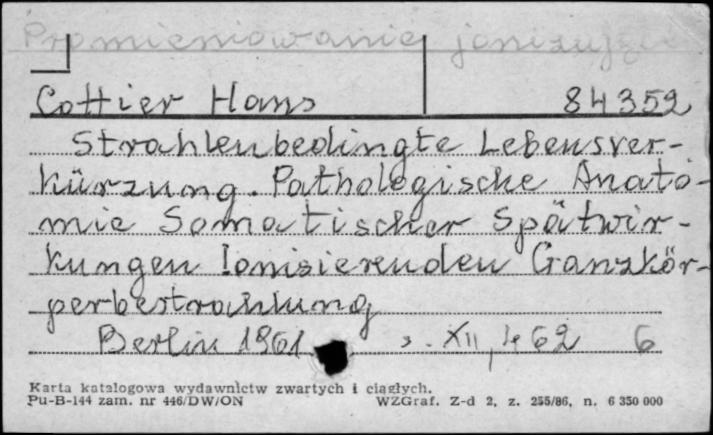 Promieniowanie jonizujące
Cottier Hans 84352
Strahlenbedingte Lebensver-
kürzung. Pathologische Anato-
mie Somatischer Spätwir-
kungen Ionisierenden Ganzkör-
perbestrahlung
Berlin 1961 s. XII, 462 6
Karta katalogowa wydawnictw zwartych i ciągłych.
Pu-B-144 zam. nr 446/DW/ON WZGraf. Z-d 2, z. 255/86, n. 6 350 000